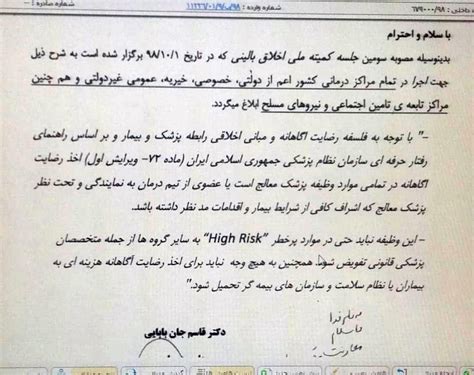 شماره صادره :
شماره وارده : ۱۱۲۲۷۰۱/۹۷/۹۸
داخلی : ۶۷۹۰۰۰/۹۸
با سلام و احترام
بدینوسیله مصوبه سومین جلسه کمیته ملی اخلاق بالینی که در تاریخ ۹۸/۱۰/۱ برگزار شده است به شرح ذیل
جهت اجرا در تمام مراکز درمانی کشور اعم از دولتی، خصوصی، خیریه، عمومی غیردولتی و هم چنین
مراکز تابعه ی تامین اجتماعی و نیروهای مسلح ابلاغ میگردد.
-" با توجه به فلسفه رضایت آگاهانه و مبانی اخلاقی رابطه پزشک و بیمار و بر اساس راهنمای
رفتار حرفه ای سازمان نظام پزشکی جمهوری اسلامی ایران (ماده ۷۲- ویرایش اول) اخذ رضایت
آگاهانه در تمامی موارد وظیفه پزشک معالج است یا عضوی از تیم درمان به نمایندگی و تحت نظر
پزشک معالج که اشراف کافی از شرایط بیمار و اقدامات مد نظر داشته باشد.
- این وظیفه نباید حتی در موارد پرخطر "High Risk" به سایر گروه ها از جمله متخصصان
پزشکی قانونی تفویض شود. همچنین به هیچ وجه نباید برای اخذ رضایت آگاهانه هزینه ای به
بیماران یا نظام سلامت و سازمان های بیمه گر تحمیل شود."
دکتر قاسم جان بابایی